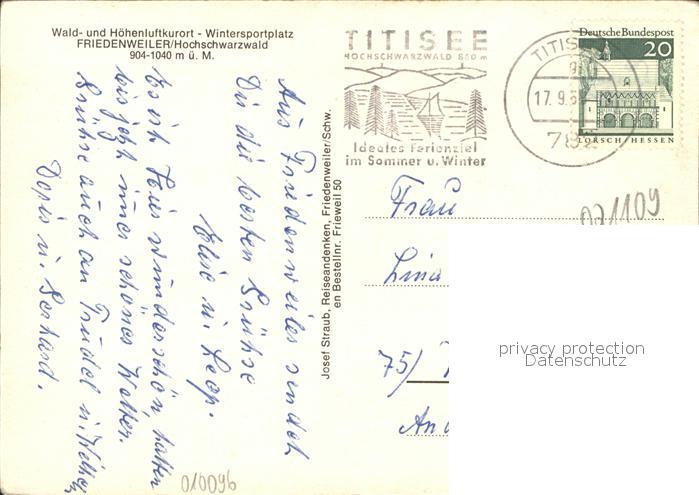 Wald- und Höhenluftkurort - Wintersportplatz
FRIEDENWEILER/Hochschwarzwald
904-1040 m ü. M.
Aus Friedenweiler sendet
Dir die besten Grüße
Elise u. Leop.
Es ist hier wunderschön, hatten
bis jetzt immer schönes Wetter.
Grüße auch an Trudel u.
Doris u. Gerhard.
Josef Straub, Reiseandenken, Friedenweiler/Schw.
en Bestellnr. Frieweil 50
TITISEE
HOCHSCHWARZWALD 860 m
Ideales Ferienziel
im Sommer u. Winter
TITIS
17.9.6
Deutsche Bundespost
20
LORSCH/HESSEN
071109
Frau
Lina
75/
An
privacy protection
Datenschutz
010096